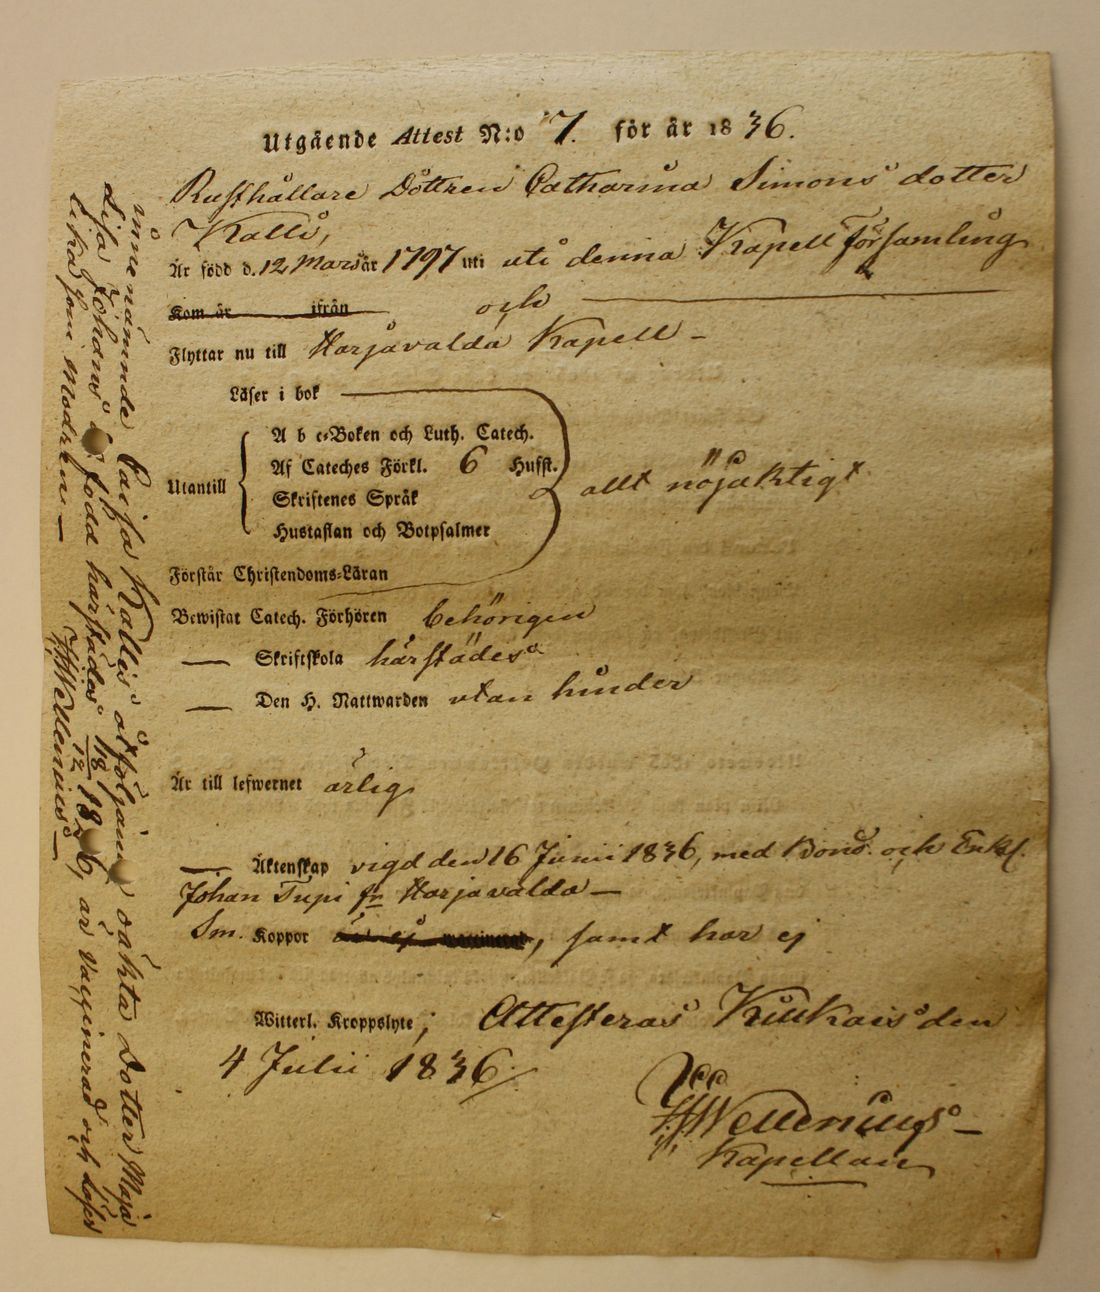 Utgående Attest N:o 7. för år 1836.
Rusthållare Dottren Catharina Simons dotter
Kalli,
Är född d. 12 Mars år 1797 uti uti denna Kapell Församling
Kom år ifrån och
Flyttar nu till Harjavalda Kapell –
Läser i bok
A b c-Boken och Luth. Catech.
Af Cateches Förkl. 6 Hufst.
Utantill
Skriftenes Språk
allt nöjaktigt
Hustaflan och Botpsalmer
Förstår Christendoms-Läran
Bewistat Catech. Förhören behörigen
— Skriftskola härstädes
— Den H. Nattwarden utan hinder
Är till lefwernet ärlig
— Äktenskap vigd den 16 Junii 1836, med Bond. och Enkl.
Johan Tupi fr Harjavalda —
Sm. Koppor, samt har ej
Witterl. Kroppslyte; Attesteras Kiukais den
4 Julii 1836.
Wellenius –
Kapellan
innenämnde Caisa Kallis åtföljande oäkta Dotter Maja
Lisa Johans född härstädes 18/12 1826, är vaccinerad och läser
lika som modren. —
Wellenius —